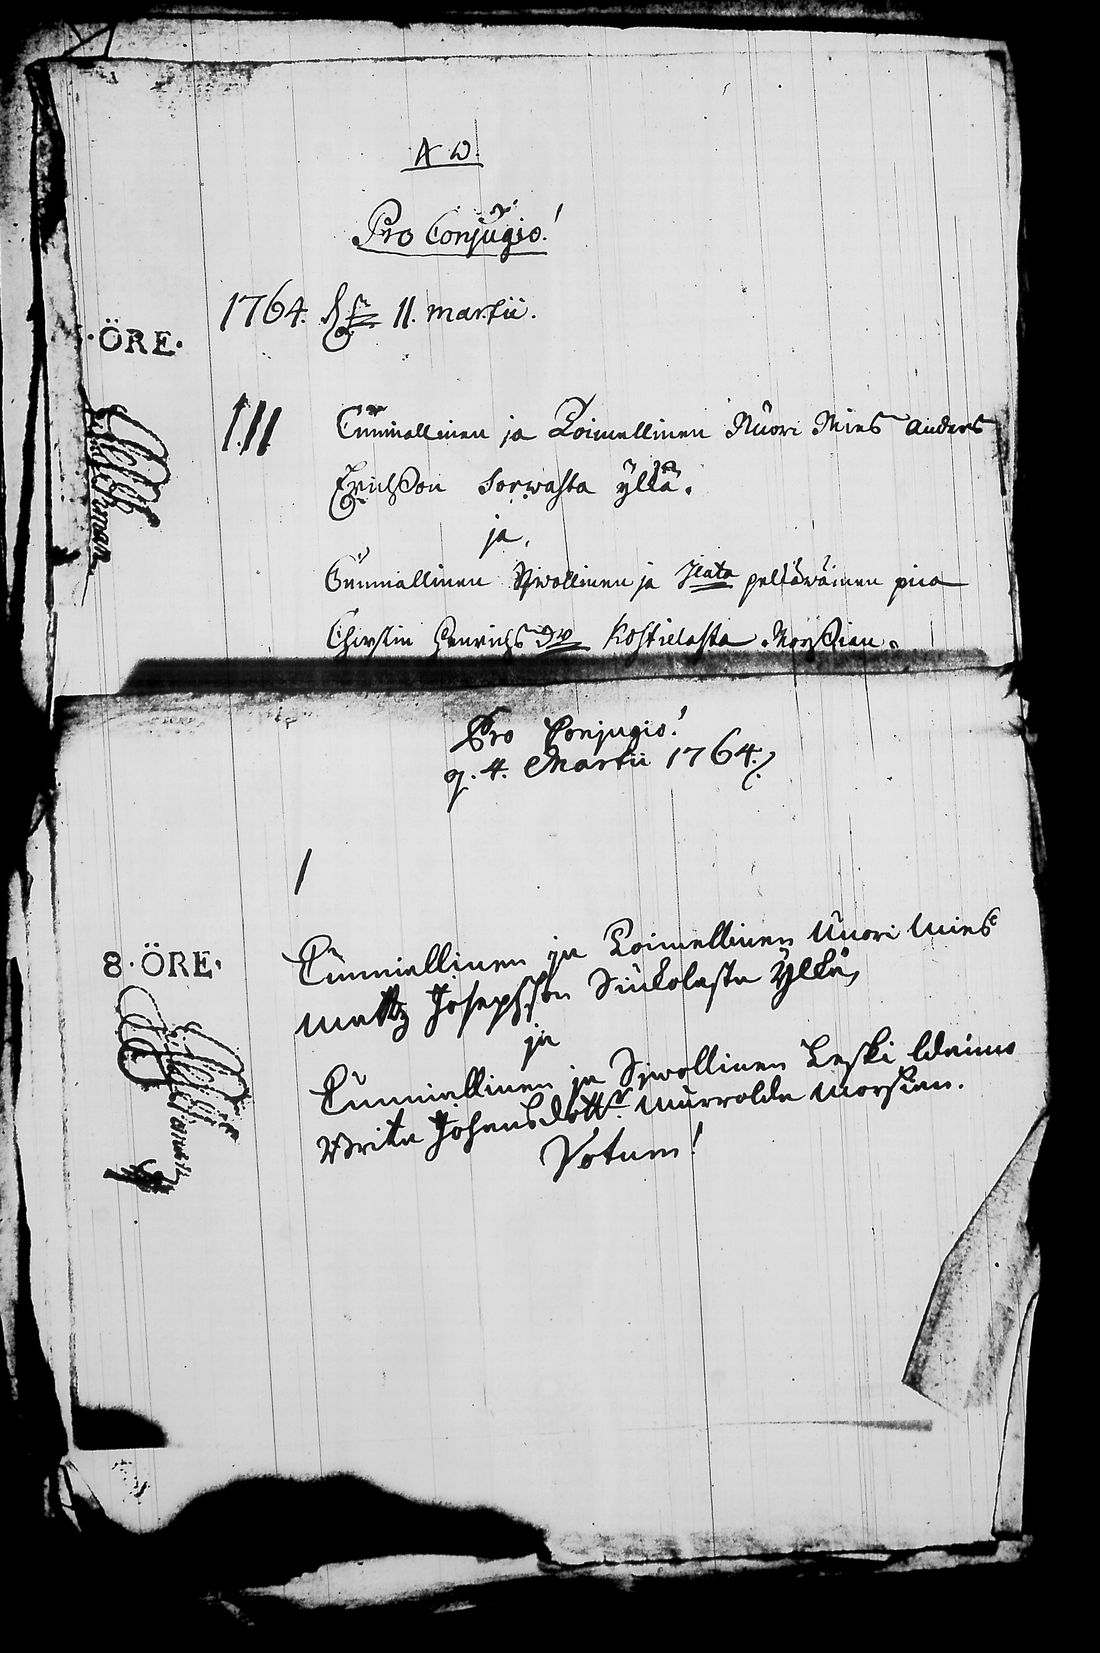 A W.
Pro Conjugio!
1764. 11. Martii.
·ÖRE·
III
Cunniallinen ja Toimellinen Nuori Mies Anders
Erichsson Sorwasta ylkä.
ja,
Cunniallinen Sywollinen ja Jlata peltäwäinen pica
Chirstin Henrichs Dr Kostielasta Morsian.
Pro Conjugio!
4. Martii 1764.
1
8·ÖRE·
Cunniallinen ja Toimellinen Nuori Mies
Matts Josephsson Siukolasta Ylkä,
ja
Cunniallinen ja Sywollinen Leski Waimo
Brita Johansdottr Murrolda Morsian.
Votum!